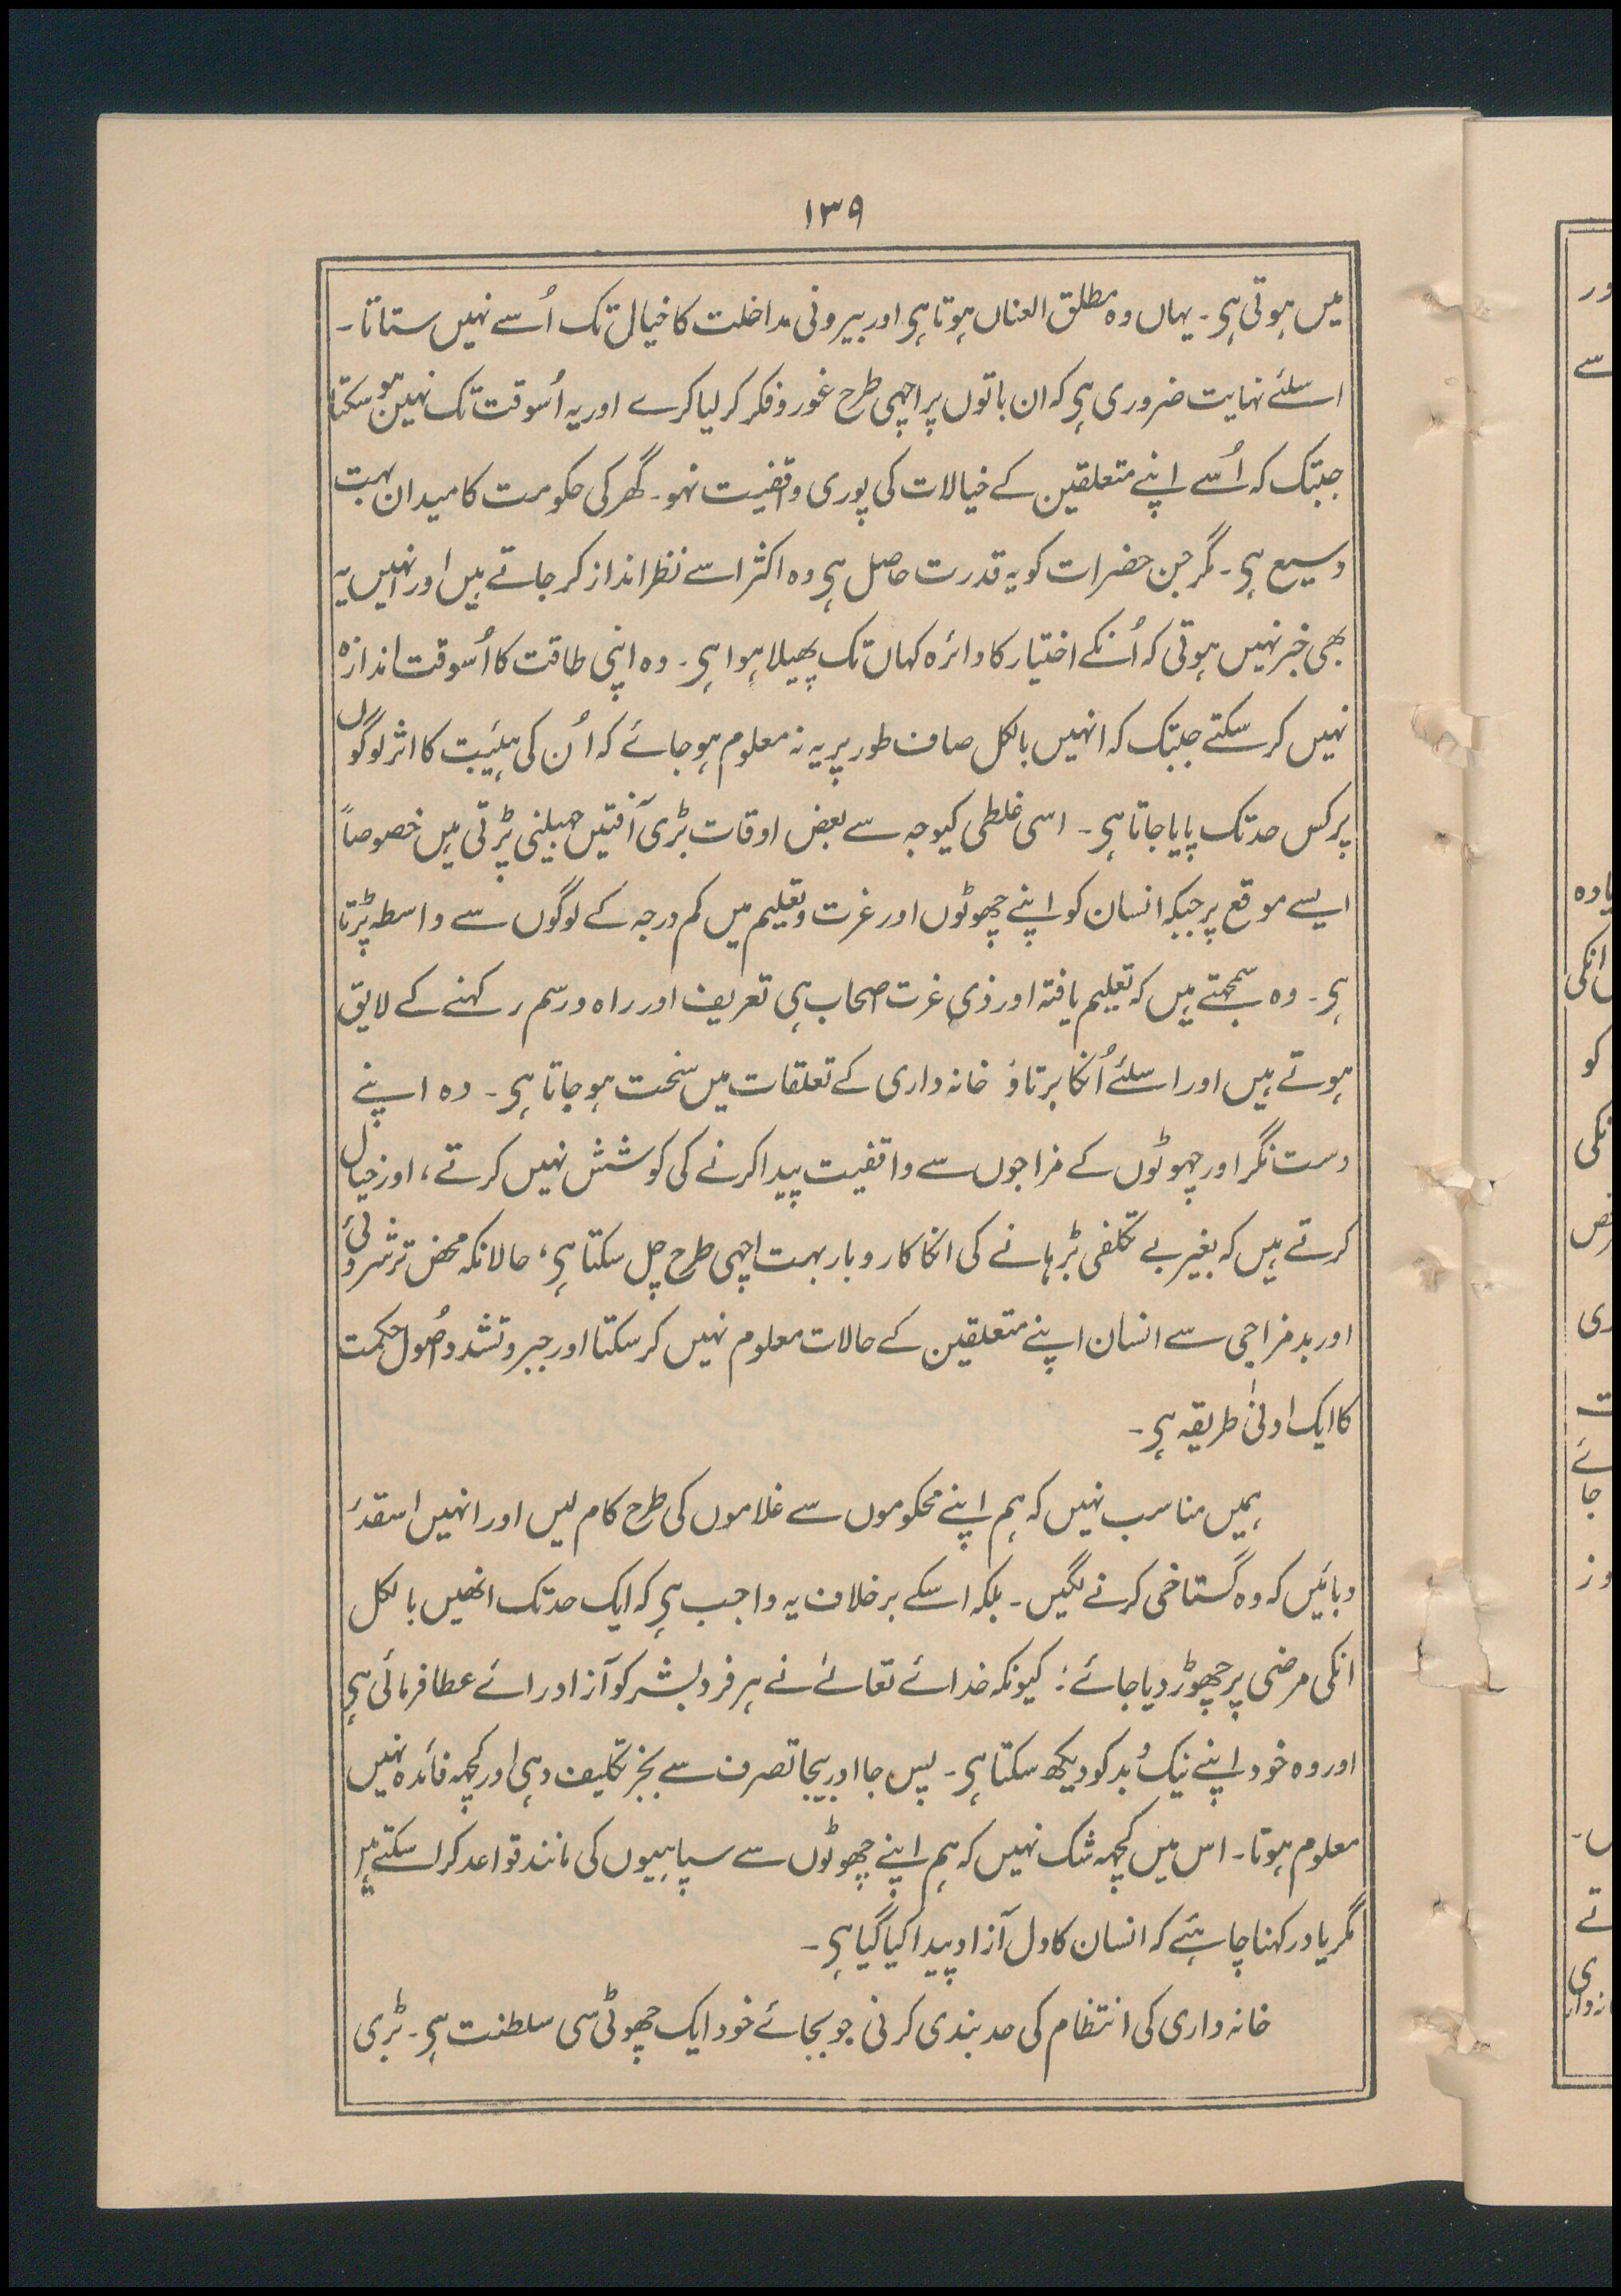 ۱۳۹
میں ہوتی ہی۔ یہاں وہ مطلق العناں ہوتا ہی اور بیرونی مداخلت کا خیال تک اُسے نہیں ستاتا۔
اسلئے نہایت ضروری ہی کہ ان باتوں پر اچھی طرح غور و فکر کر لیا کرے اور یہ اُسوقت تک نہیں ہو سکتا
جبتک کہ اُسے اپنے متعلقین کے خیالات کی پوری واقفیت نہو۔ گھر کی حکومت کا میدان بہت
وسیع ہی۔ مگر جن حضرات کو یہ قدرت حاصل ہی وہ اکثر اسے نظر انداز کر جاتے ہیں اور انہیں یہ
بھی خبر نہیں ہوتی کہ اُنکے اختیار کا دائرہ کہاں تک پھیلا ہوا ہی۔ وہ اپنی طاقت کا اُسوقت اندازہ
نہیں کر سکتے جبتک کہ انہیں بالکل صاف طور پر یہ نہ معلوم ہو جائے کہ اُن کی ہئیبت کا اثر لوگوں
پر کس حد تک پایا جاتا ہی۔ اسی غلطی کیوجہ سے بعض اوقات بڑی آفتیں جہیلنی پڑتی ہیں خصوصاً
ایسے موقع پر جبکہ انسان کو اپنے چھوٹوں اور عزت و تعلیم میں کم درجہ کے لوگوں سے واسطہ پڑتا
ہی۔ وہ سمجھتے ہیں کہ تعلیم یافتہ اور ذی عزت اصحاب ہی تعریف اور راہ و رسم رکہنے کے لایق
ہوتے ہیں اور اسلئے اُنکا برتاؤ خانہ داری کے تعلقات میں سخت ہو جاتا ہی۔ وہ اپنے
دست نگر اور چہوٹوں کے مزاجوں سے واقفیت پیدا کرنے کی کوشش نہیں کرتے، اور خیال
کرتے ہیں کہ بغیر بے تکلفی بڑہانے کی انکا کاروبار بہت اچہی طرح چل سکتا ہی، حالانکہ محض ترشروئی
اور بدمزاجی سے انسان اپنے متعلقین کے حالات معلوم نہیں کر سکتا اور جبر و تشدد اصُول حکمت
کا ایک ادنیٰ طریقہ ہی۔
ہمیں مناسب نہیں کہ ہم اپنے محکوموں سے غلاموں کی طرح کام لیں اور انہیں اسقدر
دبائیں کہ وہ گستاخی کرنے لگیں۔ بلکہ اسکے برخلاف یہ واجب ہی کہ ایک حد تک انھیں بالکل
انکی مرضی پر چھوڑ دیا جائے؛ کیونکہ خدائے تعالےٰ نے ہر فرد بشر کو آزاد رائے عطا فرمائی ہی
اور وہ خود اپنے نیک بُد کو دیکھ سکتا ہی۔ پس جا اور بیجا تصرف سے بجز تکلیف دہی اور کچہہ فائدہ نہیں
معلوم ہوتا۔ اس میں کچہہ شک نہیں کہ ہم اپنے چھوٹوں سے سپاہیوں کی مانند قواعد کرا سکتے ہیں
مگر یاد رکہنا چاہئے کہ انسان کا دل آزاد پیدا کیا گیا ہی۔
خانہ داری کی انتظام کی حد بندی کرنی جو بجائے خود ایک چھوٹی سی سلطنت ہی۔ بڑی